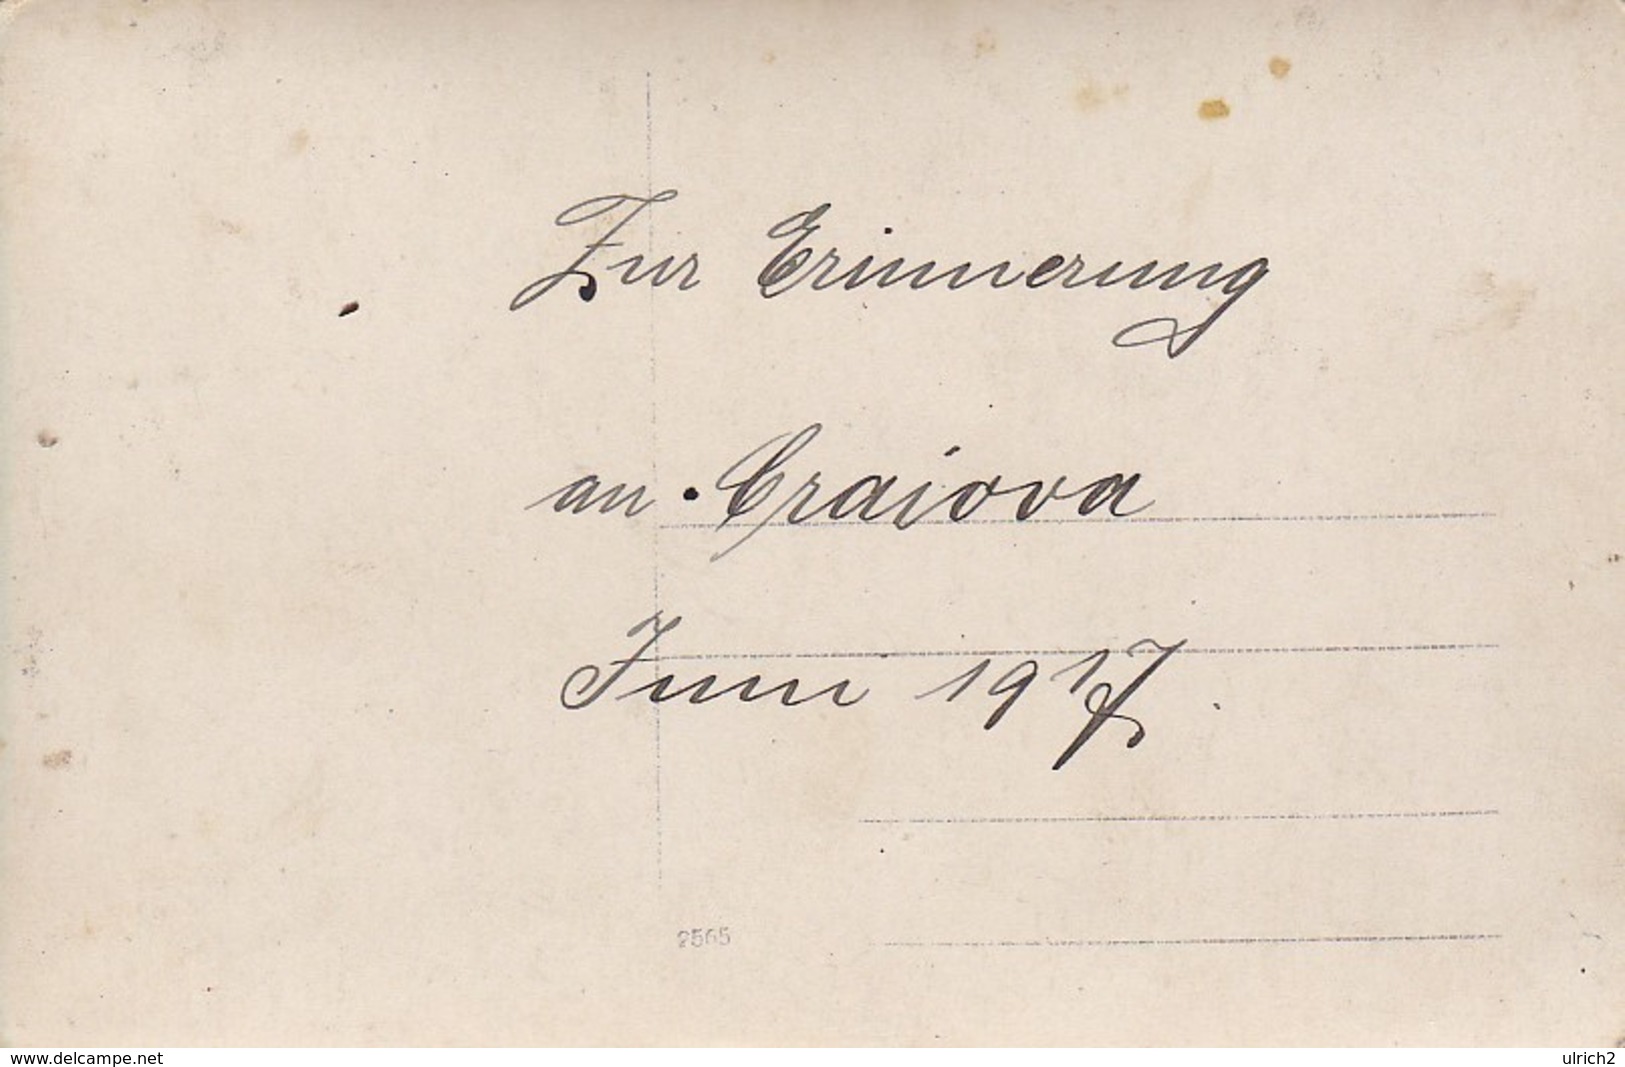 Zur Erinnerung
an Craiova
Juni 1917.
2565
www.delcampe.net
ulrich2